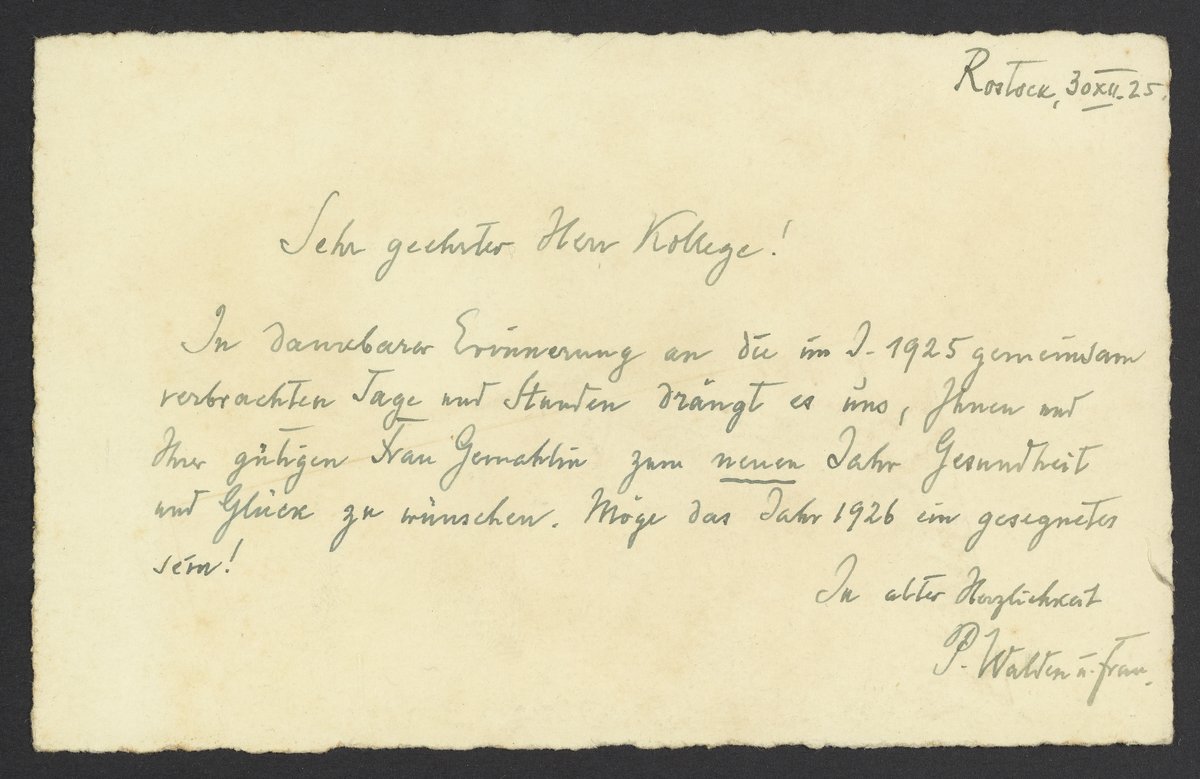 Rostock, 30 XII. 25.
Sehr geehrter Herr Kollege!
In dankbarer Erinnerung an die im J. 1925 gemeinsam
verbrachten Tage und Stunden drängt es uns, Ihnen und
Ihrer gütigen Frau Gemahlin zum neuen Jahr Gesundheit
und Glück zu wünschen. Möge das Jahr 1926 ein gesegnetes
sein!
In alter Herzlichkeit
P. Walden u. Frau.